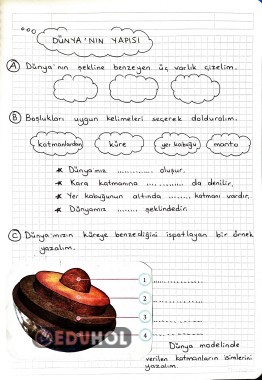 DÜNYA'NIN YAPISI
A) Dünya'nın şekline benzeyen üç varlık çizelim.
B) Boşlukları uygun kelimeleri seçerek dolduralım.
katmanlardan küre yer kabuğu manto
* Dünyamız ............ oluşur.
* Kara katmanına ............ da denilir.
* Yer kabuğunun altında ........ katmanı vardır.
* Dünyamız ........ şeklindedir.
C) Dünyamızın küreye benzediğini ispatlayan bir örnek
yazalım.
1 ............
2 ............
3 ............
4 ............
EDUHOL
Dünya modelinde
verilen katmanların isimlerini
yazalım.